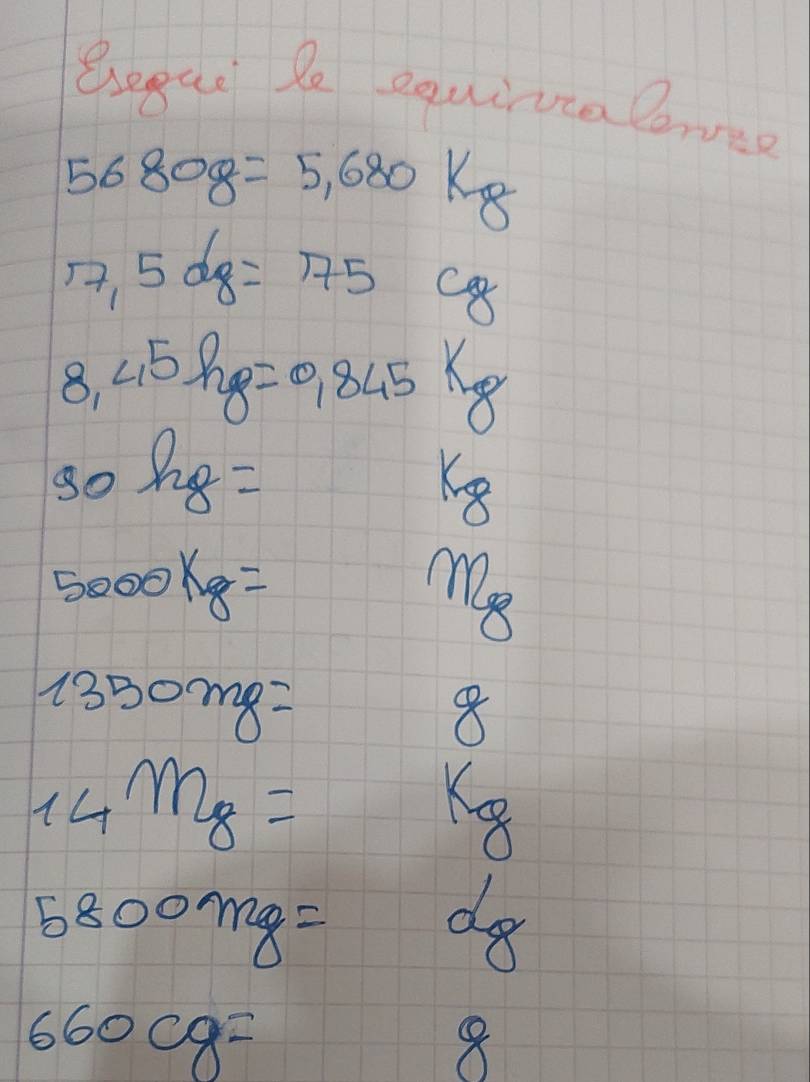 Esegui le equivalenze
5680g= 5,680 Kg
7,5 dg= 75 cg
8,45 hg= 0,845 Kg
90 hg= Kg
5000 Kg= Mg
1350 mg= g
14 Mg= Kg
5800 mg= dg
660 cg= g